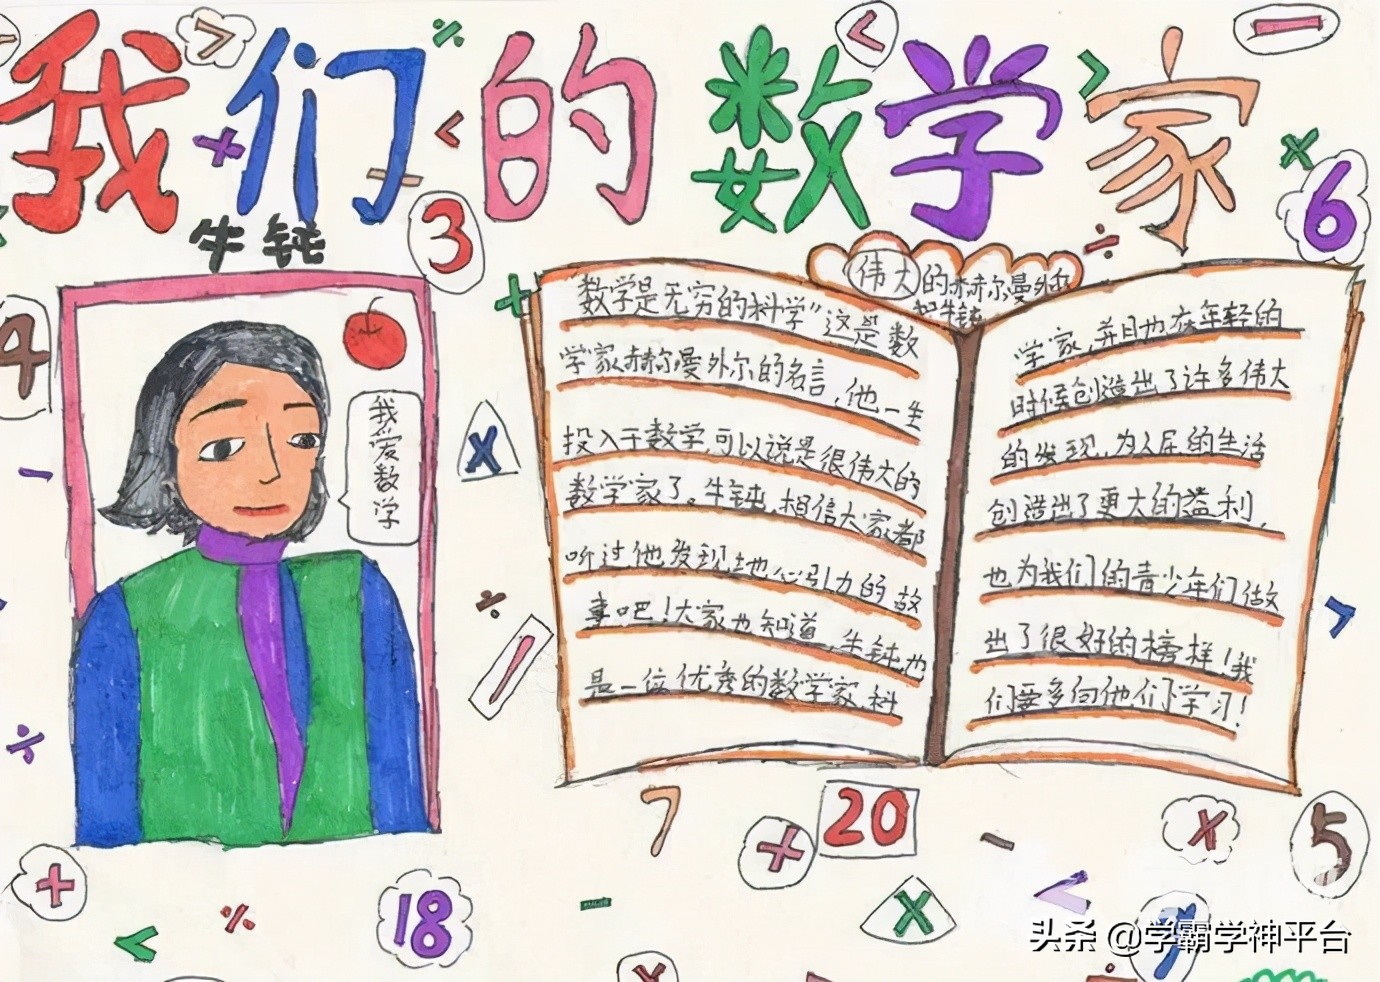 我们的数学家
牛钝
3
6
4
我爱数学
伟大的赫尔曼外尔
和牛钝
"数学是无穷的科学"这是数
学家赫尔曼外尔的名言,他一生
投入于数学,可以说是很伟大的
数学家了。牛钝,相信大家都
听过他发现地心引力的故
事吧!大家也知道,牛钝也
是一位优秀的数学家,科
学家,并且也在年轻的
时候创造出了许多伟大
的发现,为人民的生活
创造出了更大的益利,
也为我们的青少年们做
出了很好的榜样!我
们要多向他们学习!
7
20
5
18
头条 @学霸学神平台